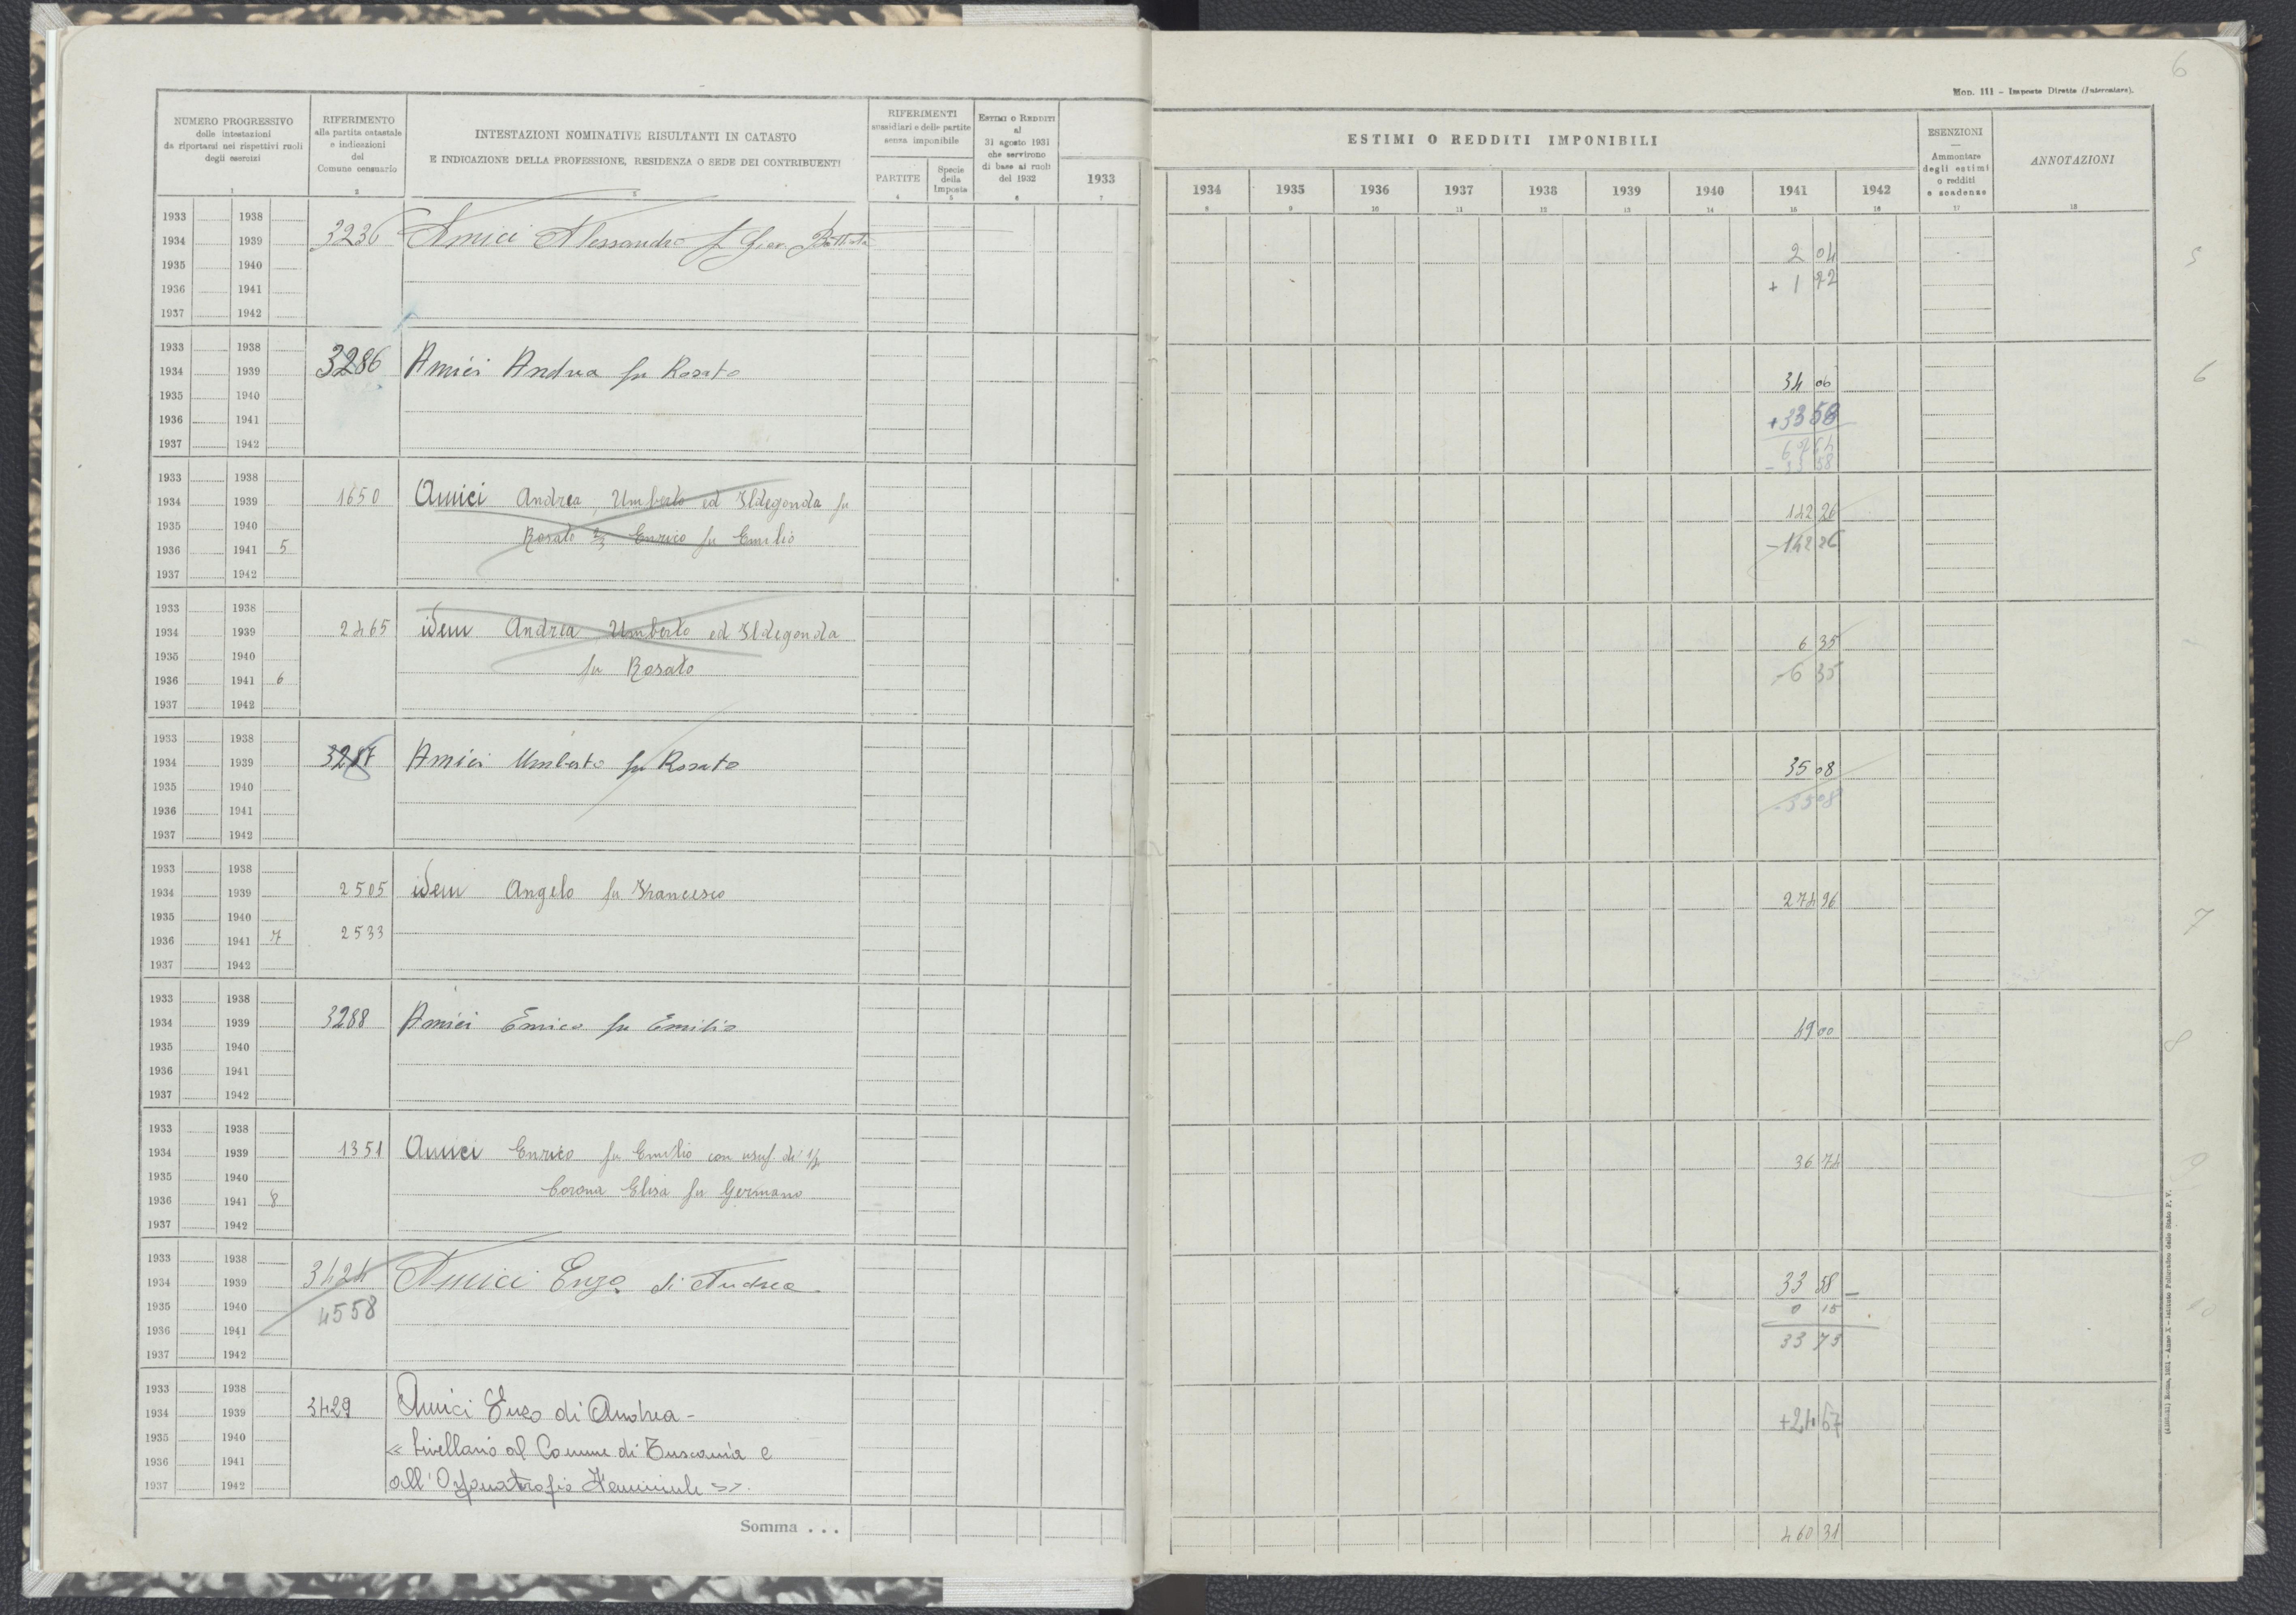 6
Mod. 111 – Imposte Dirette (Intercalare).
NUMERO PROGRESSIVO
delle intestazioni
da riportarsi nei rispettivi ruoli
degli esercizi
1
RIFERIMENTO
alla partita catastale
e indicazioni
del
Comune censuario
2
INTESTAZIONI NOMINATIVE RISULTANTI IN CATASTO
E INDICAZIONE DELLA PROFESSIONE, RESIDENZA O SEDE DEI CONTRIBUENTI
3
RIFERIMENTI
sussidiari e delle partite
senza imponibile
PARTITE
4
Specie
della
Imposta
5
ESTIMI O REDDITI
al
31 agosto 1931
che servirono
di base ai ruoli
del 1932
6
ESTIMI O REDDITI IMPONIBILI
1933 1934 1935 1936 1937 1938 1939 1940 1941 1942
7 8 9 10 11 12 13 14 15 16
ESENZIONI
—
Ammontare
degli estimi
o redditi
e scadenze
17
ANNOTAZIONI
18
1933 1938
1934 1939 3236 Amici Alessandro f. Giov. Battista 2 04 5
1935 1940
1936 1941 + 1 72
1937 1942
1933 1938
1934 1939 3286 Amici Andrea fu Rosato 34 06 6
1935 1940
1936 1941 + 33 58
1937 1942 67 64
- 33 58
1933 1938
1934 1939 1650 Amici Andrea, Umberto ed Ildegonda fu 142 26
1935 1940 Rosato Enrico fu Emilio
1936 1941 5 - 142 26
1937 1942
1933 1938
1934 1939 2465 idem Andrea Umberto ed Ildegonda 6 35
1935 1940 fu Rosato
1936 1941 6 - 6 35
1937 1942
1933 1938
1934 1939 3287 Amici Umberto fu Rosato 35 08
1935 1940
1936 1941 - 35 08
1937 1942
1933 1938
1934 1939 2505 idem Angelo fu Francesco 274 96
1935 1940 7
1936 1941 7 2533
1937 1942
1933 1938
1934 1939 3288 Amici Enrico fu Emilio 49 00
1935 1940 8
1936 1941
1937 1942
1933 1938
1934 1939 1351 Amici Enrico fu Emilio con usuf di 1/3 36 74
1935 1940 9
1936 1941 8 Corona Elisa fu Germano
1937 1942
1933 1938
1934 1939 3424 Amici Enzo di Andrea 33 58 –
1935 1940 4558 0 15 10
1936 1941
1937 1942 33 73
1933 1938
1934 1939 3429 Amici Enzo di Andrea - + 24 67
1935 1940
1936 1941 « livellario al Comune di Tuscania e
1937 1942 all'Orfanotrofio Femminile ».
Somma . . . 460 31